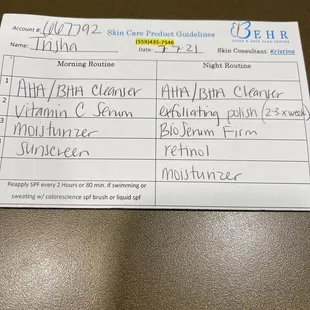 Account #: 6067792 Skin Care Product Guidelines BEHR
(559)435-7546
Name: Trisha Date: 7-7-21 Skin Consultant: Kristine
Morning Routine Night Routine
1 AHA/BHA Cleanser AHA/BHA Cleanser
2 Vitamin C Serum exfoliating polish (2-3 x week)
3 moisturizer BioSerum Firm
sunscreen retinol
moisturizer
Reapply SPF every 2 Hours or 80 min. if swimming or
sweating w/ colorescience spf brush or liquid spf